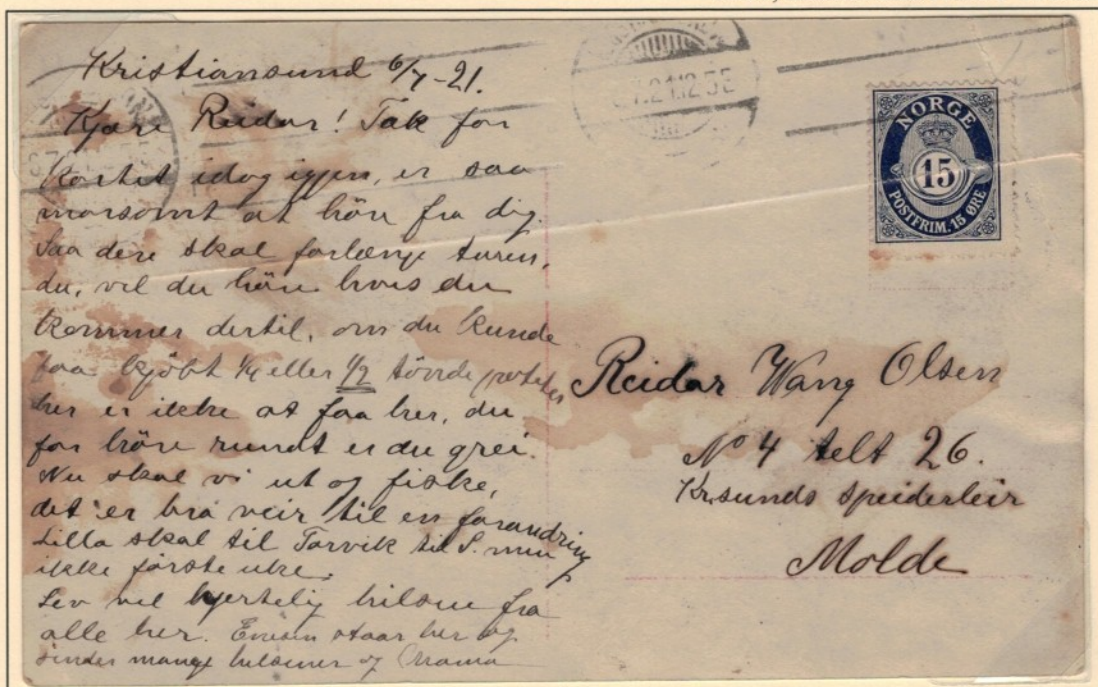 Kristiansund 6/7-21.
Kjære Reidar! Tak for
kortet idag igjen, er saa
morsomt at höre fra dig.
Saa dere skal forlænge turen,
du, vil du höre hvis du
kommer dertil, om du kunde
faa kjöbt 1/4 eller 1/2 tönde poteter
her er ikke at faa her, du
for höre rundt er du grei.
Nu skal vi ut og fiske,
det er bra veir til en forandring
Lilla skal til Torvik til S. men
ikke förste uke.
Lev vel hjertelig hilsen fra
alle her. staar her og
sender mange hilsener og Mama
7.21.12 5E
NORGE
15
POSTFRIM. 15 ØRE
Reidar Wang Olsen
No 4 telt 26.
Kr.sunds speiderleir
Molde